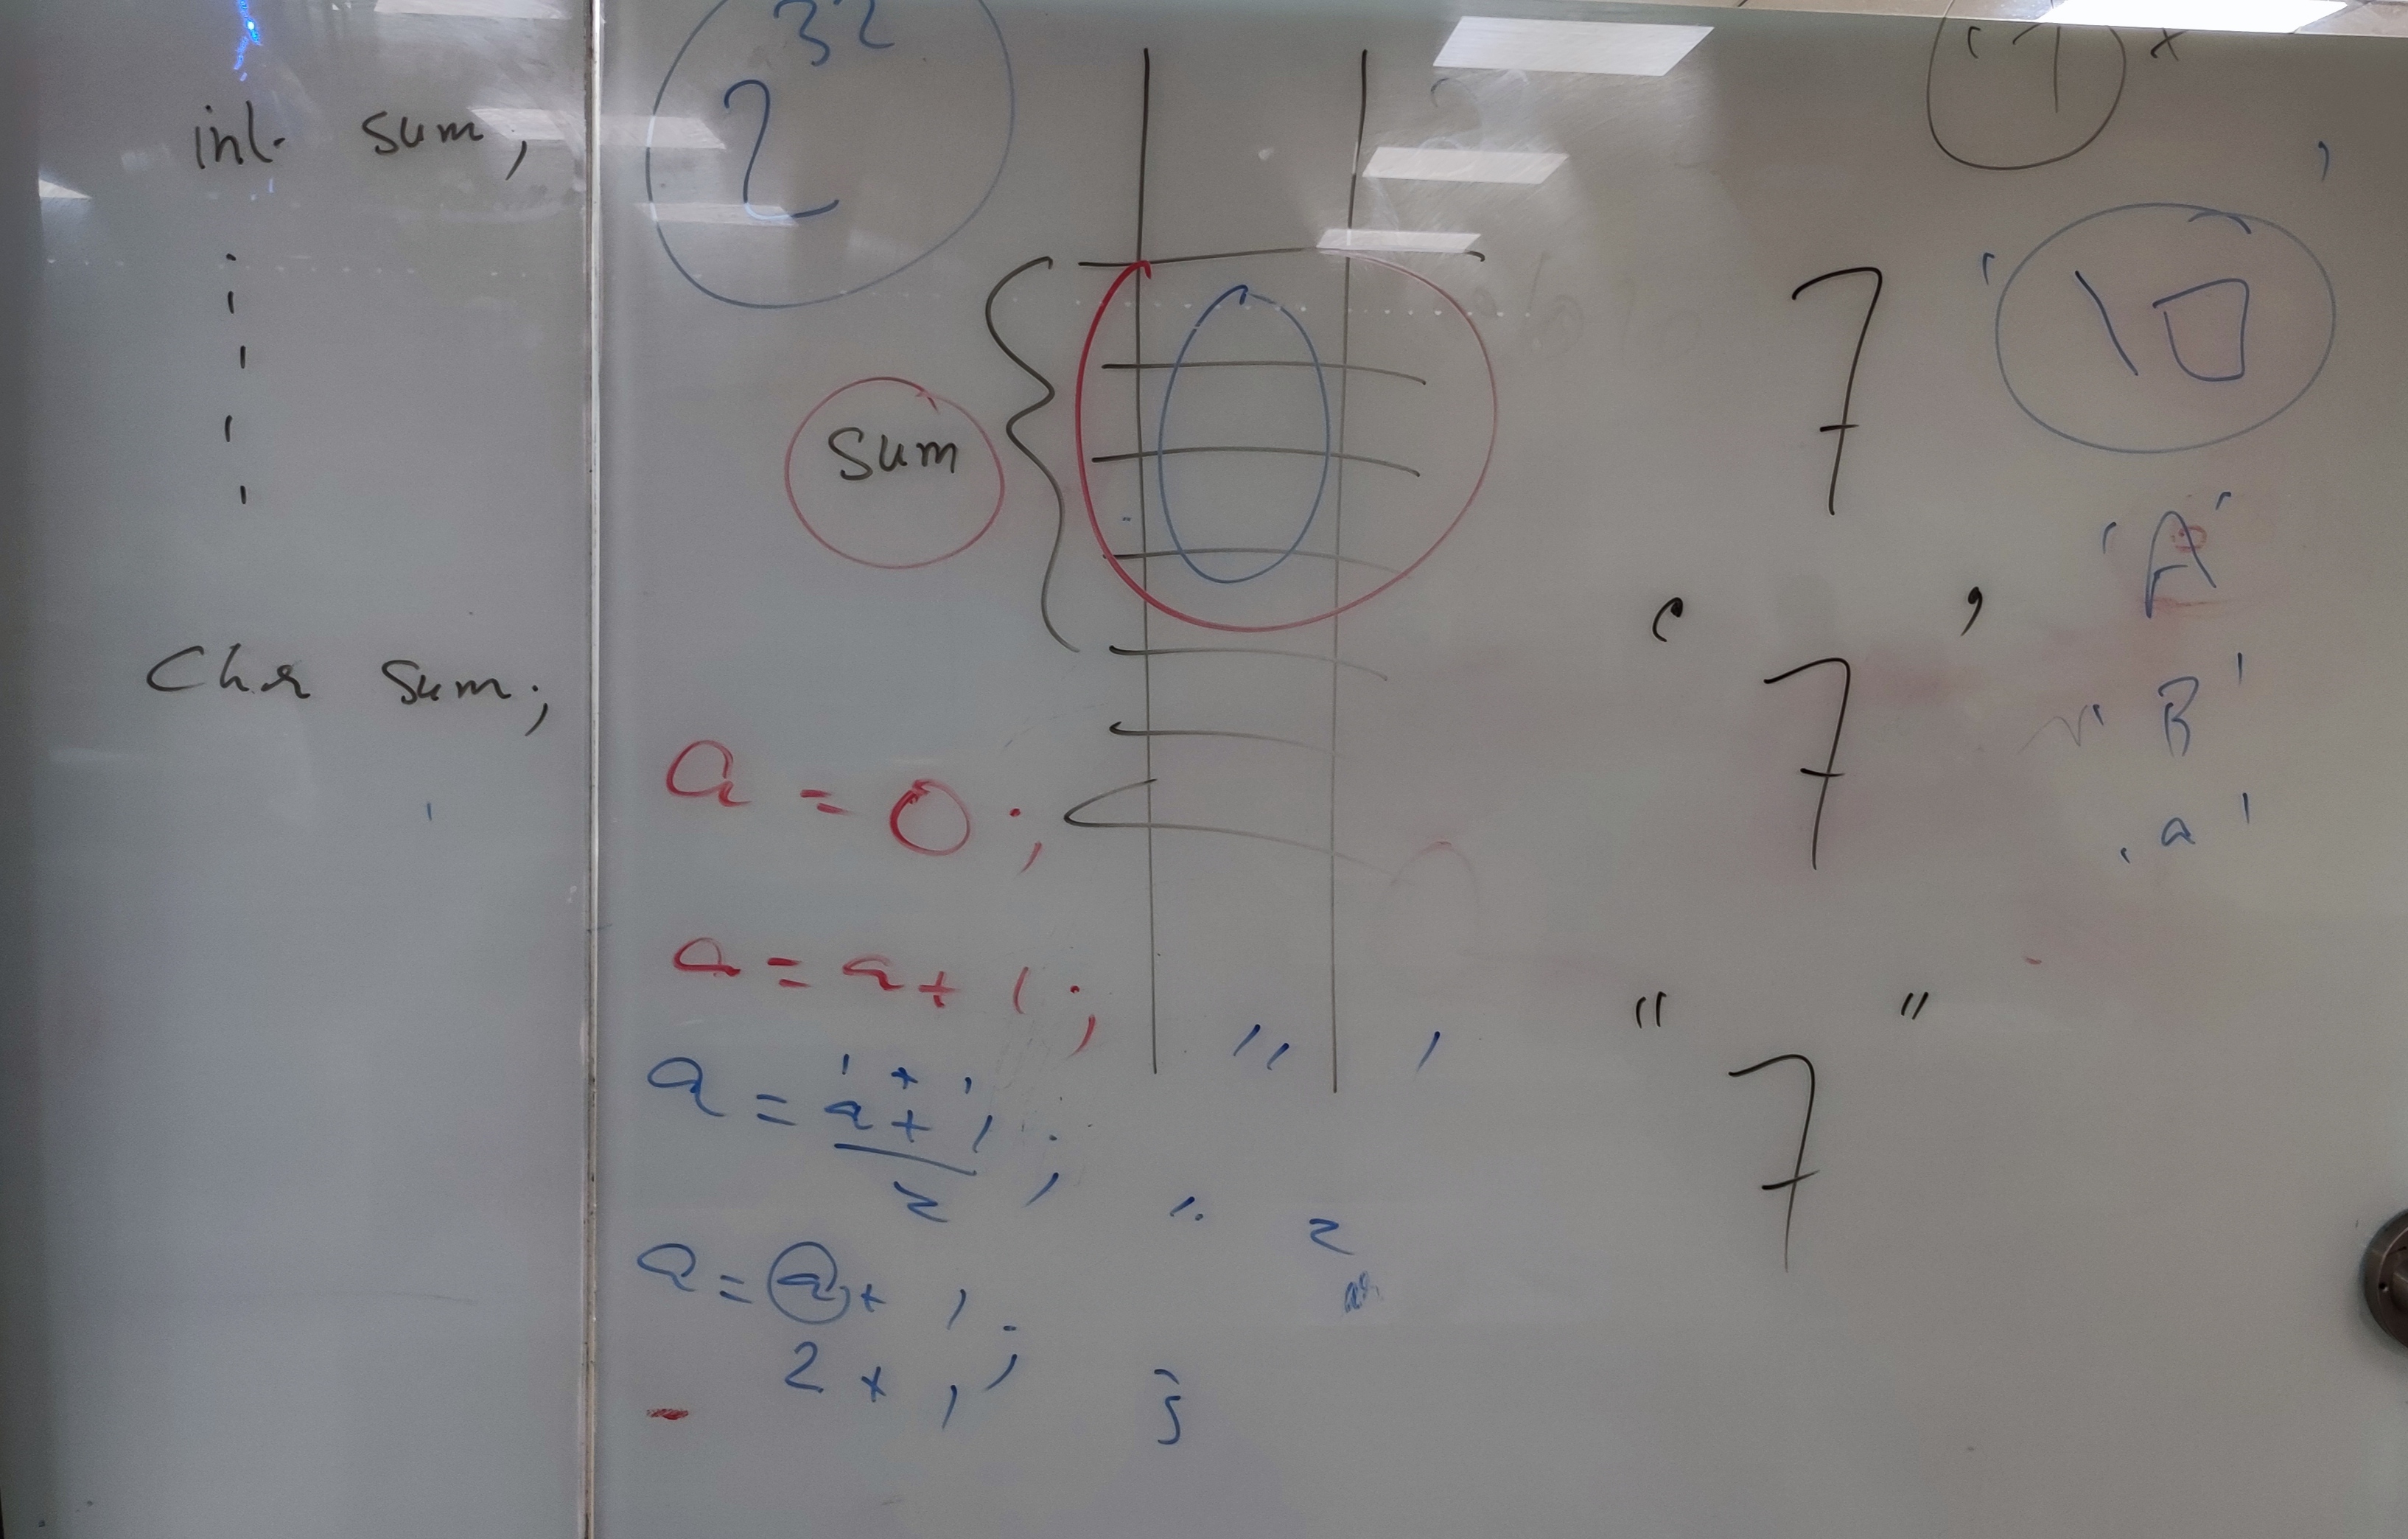 int sum;
Char sum;
2^32
sum
a = 0;
a = a + 1;
1 + 1
a = a + 1;
2
a = a + 1;
2 + 1
2
3
7
'7'
"7"
'\0'
'A'
'B'
'a'